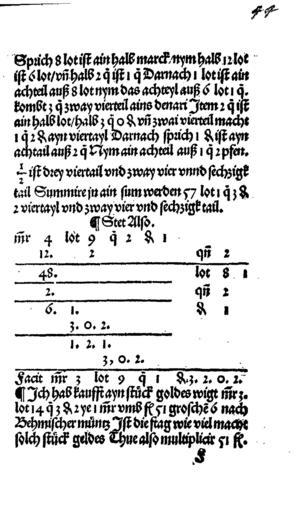 44
Sprich 8 lot ist ain halb marck nym halb 12 lot
ist 6 lot/ vñ halb 2 q̃ ist 1 q̃ Darnach 1 lot ist ain
achteil auß 8 lot nym das achteyl auß 6 lot 1 q̃.
kombt 3 q̃ zway vierteil ains denari Item 2 q̃ ist
ain halb lot/ halb 3 q̃ 0 & vñ zwai vierteil macht
1 q̃ 2 & ayn viertayl Darnach sprich 1 & ist ayn
achtail auß 2 q̃ Nym ain achteil auß 1 q̃ 2 pfen.
1/2 ist drey viertail vnd zway vier vnnd sechzigk
tail Summire in ain sum werden 57 lot 1 q̃ 3 &
2 viertayl vnd zway vier vnd sechzigk tail.
¶ Stet Also.
m̃r 4 lot 9 q̃ 2 & 1
12. 2 qñ 2
48. lot 8 1
2. qñ 2
6. 1. & 1
3. 0. 2.
1. 2. 1.
3, 0. 2.
Facit m̃r 3 lot 9 q̃ 1 &.3. 2. 0. 2.
¶ Ich hab kaufft ayn stück goldes wigt m̃r 3.
lot 14 q̃ 3 & 2 ye 1 m̃r vmb fl 51 groschẽ 6 nach
Behmischer müntz Ist die frag wie viel macht
solch stück geldes Thue also multiplicir 51 fl.